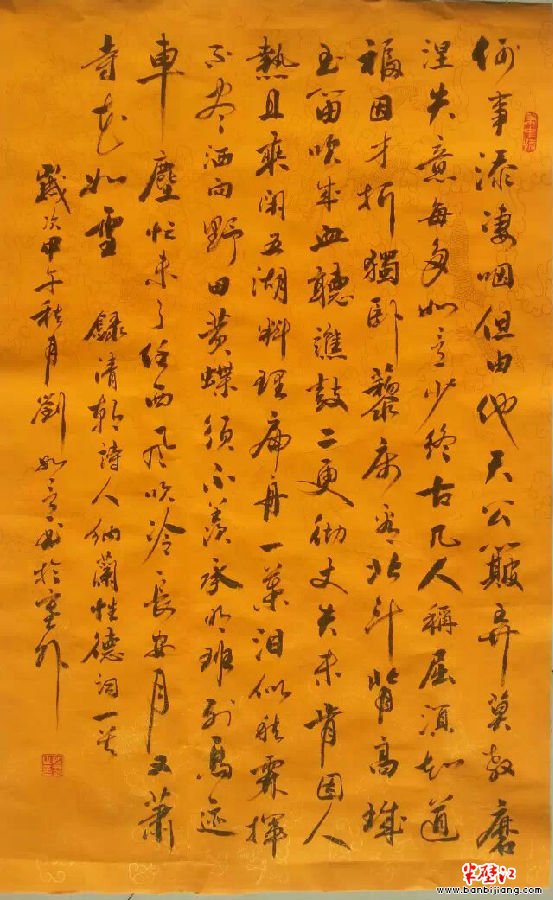 何事添淒咽但由他天公簸弄莫教磨
涅失意每多如意少終古几人稱屈須知道
福因才折獨卧藜床看北斗背高城
玉笛吹成血聽譙鼓二更徹丈夫未肯因人
熱且乘閑五湖料理扁舟一葉泪似秋霖揮
不盡洒向野田黄蝶須不羨承明班列馬迹
車塵忙未了任西風吹冷長安月又蕭
寺花如雪 錄清朝詩人納蘭性德詞一首
歲次甲午秋月劉如意書於塞外
半壁江
www.banbijiang.com